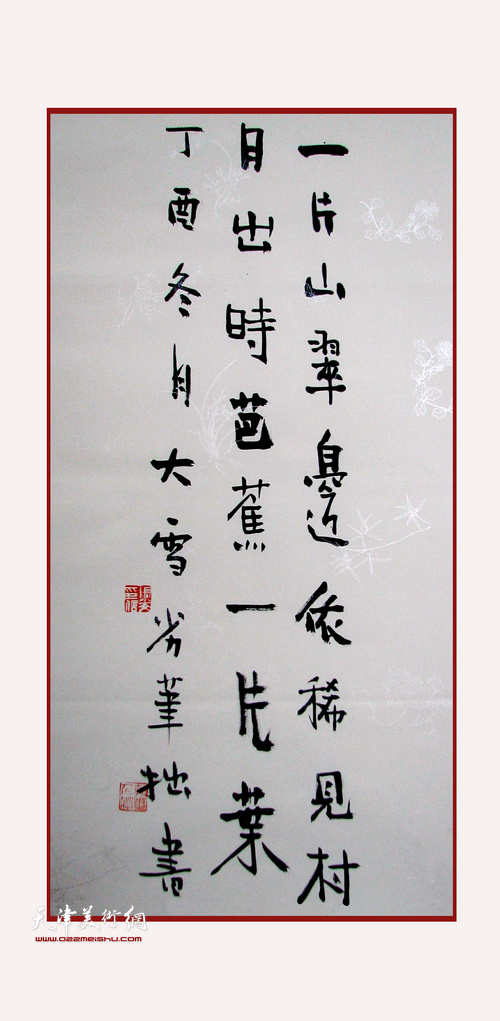 一片山翠邊依稀見村
月出時芭蕉一片葉
丁酉冬月大雪劣筆拙書
天津美術網
www.022meishu.com